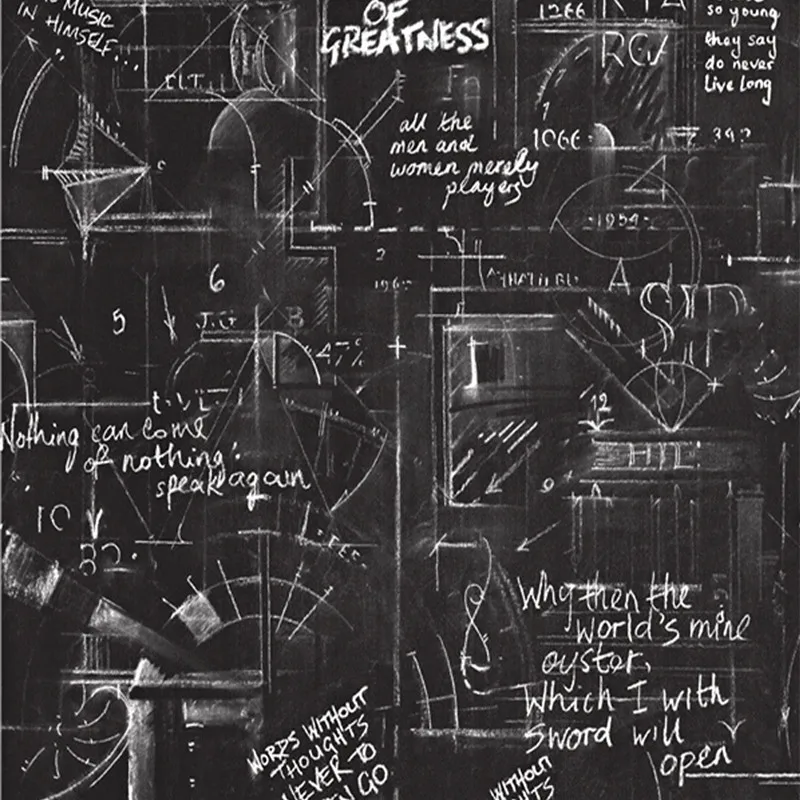 MUSIC
IN HIMSELF...
OF
GREATNESS
1266
so young
they say
do never
live long
ELT
RG
all the
men and
women merely
players
1066
392
C
4
1954
2
196
A
SIP
6
5
B
47%
12
Nothing can come
of nothing:
speak again
HIL
9
10
82.
Why then the
world's mine
oyster,
Which I with
sword will
open
WORDS WITHOUT
THOUGHTS
NEVER TO
GO
WITHOUT